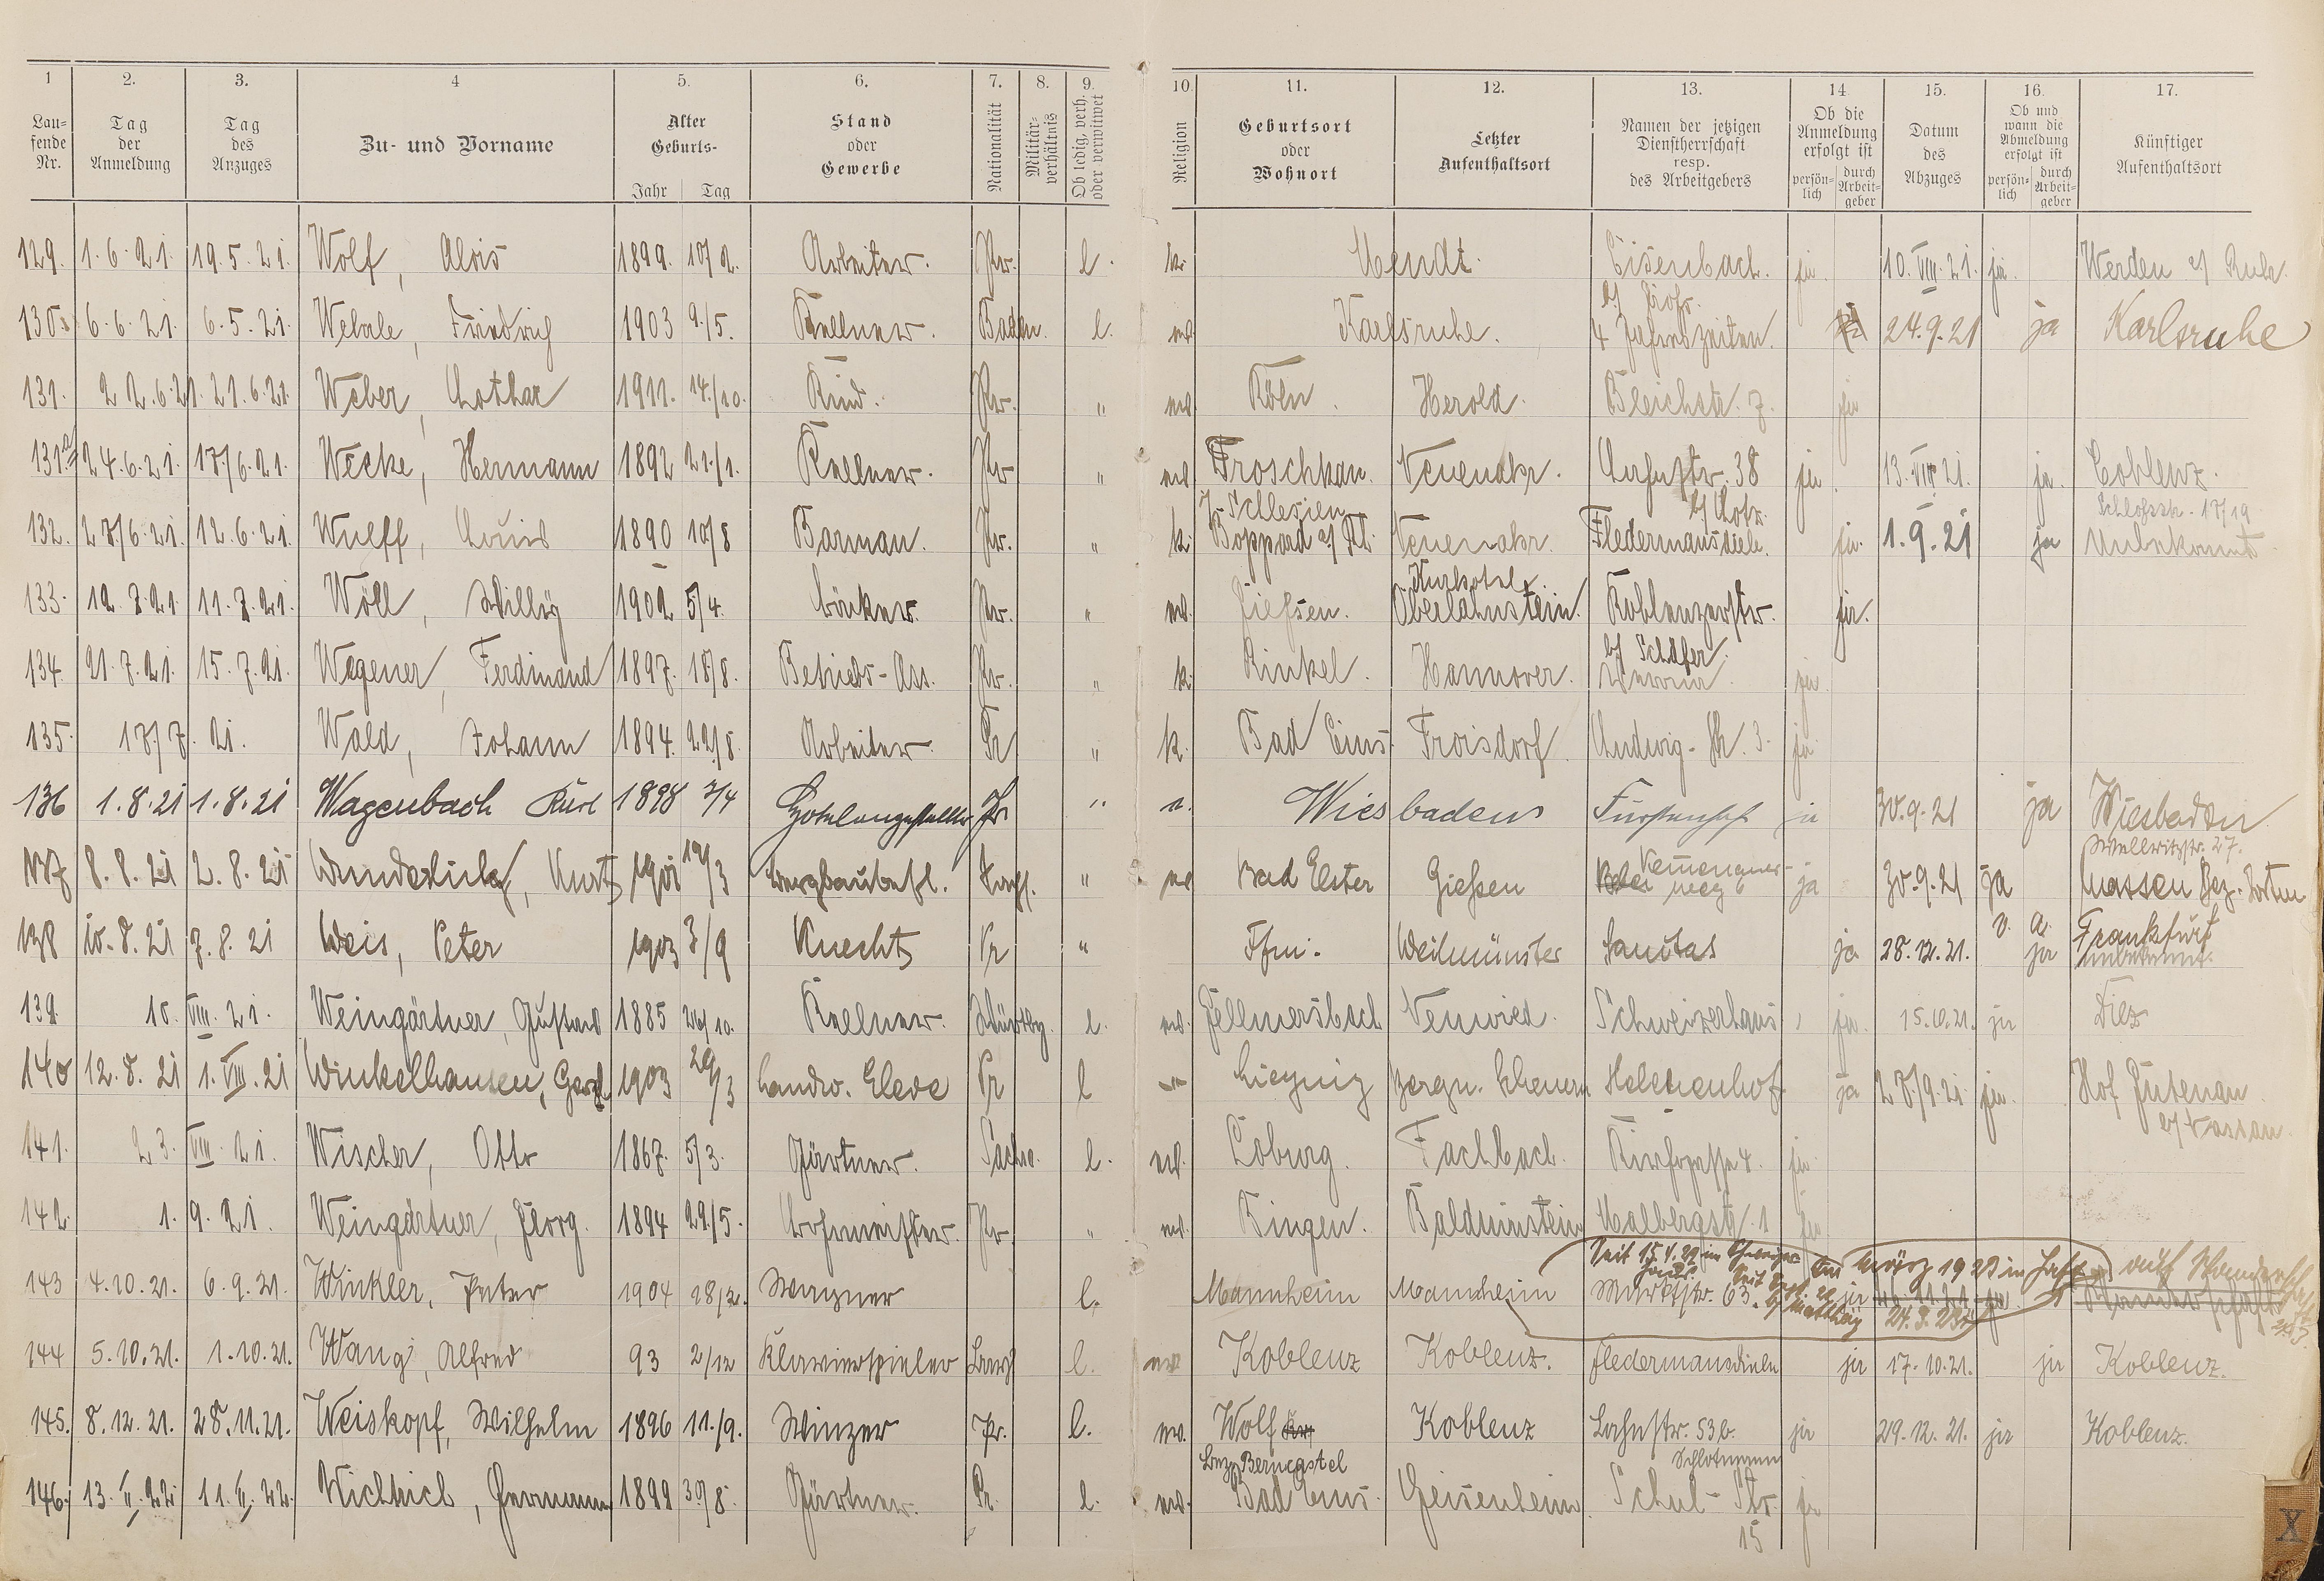 1 2. 3. 4 5. 6. 7. 8. 9. 10. 11. 12. 13. 14. 15. 16. 17.
Lau-
fende
Nr.
Tag
der
Anmeldung
Tag
des
Anzuges
Zu- und Vorname
Alter
Geburts-
Jahr Tag
Stand
oder
Gewerbe
Nationalität
Militär-
verhältnis
Ob ledig, verh.
oder verwitwet
Religion
Geburtsort
oder
Wohnort
Letzter
Aufenthaltsort
Namen der jetzigen
Dienstherrschaft
resp.
des Arbeitgebers
Ob die
Anmeldung
erfolgt ist
persön-
lich
durch
Arbeit-
geber
Datum
des
Abzuges
Ob und
wann die
Abmeldung
erfolgt ist
persön-
lich
durch
Arbeit-
geber
Künftiger
Aufenthaltsort
129. 1. 6. 21. 19. 5. 21. Wolf, Alois 1899. Arbeiter. Pr. l. k. Eisenbach. ja 10. VIII. 21. ja Werden a/ Ruhr.
130. 6. 6. 21. 6. 5. 21. Friedrich 1903 9./5. Kellner. Baden. l. ev. Karlsruhe. 4 Jahreszeiten. 24. 9. 21 ja Karlsruhe
131. 22. 6. 21. 21. 6. 21. Weber, Lothar 1911. 14./10. Kind. Pr. " ev. Köln. Herold. Bleichstr. 7. ja
131a 24. 6. 21. 17/6. 21. Wecke, Hermann 1892 21./1. Kellner. Pr " ev. Froschkau Neuenahr. Lahnstr. 38 ja. 13. VIII. 21. ja. Coblenz.
i/ Schlesien Schloßstr. 17/19
132. 27/6. 21. 12. 6. 21. Wulff, Louis 1890 10/8 Barman. Pr. " k. Boppard a/ Rh. Neuenahr. Fledermausdiele. ja. 1. 9. 21 ja Unbekannt
Kurhotel
133. 12. 7. 21. 11. 7. 21. Wöll, Willy 1902 5/4. Bäcker. Pr. " ev. Gießen. Oberlahnstein. Koblenzerstr. ja.
b/ Schäfer.
134. 21. 7. 21. 15. 7. 21. Wegener, Ferdinand 1897. 18/8. Betriebs-Ass. Pr. " k. Rinkel. Hannover. ja
135. 17/7. 21. Wald, Johann 1894. 22/8. Arbeiter. Pr " k. Bad Ems. Troisdorf. Ludwig-Str. 3. ja
136 1. 8. 21 1. 8. 21 Wagenbach Karl 1898 7/4 Hotelangestellter Pr " Wiesbaden Fürstenhof ja 30. 9. 21 ja Wiesbaden
Wellritzstr. 27.
137 8. 8. 21 2. 8. 21 Wunderlich, Kurt 1901 19/3 Bergbaubefl. " ev Bad Elster Gießen weg 6 ja 30. 9. 21 ja Massen Bez. Dortm
138 10. 8. 21 7. 8. 21 Weis, Peter 1903 3/9 Knecht Pr " Ffm. Weilmünster Sanitas ja 28. 12. 21. ja Frankfurt
unbekannt.
139. 10. VIII. 21. Weingärtner, Gustav 1885 26/10. Kellner. Württbg. l. ev. Neuwied. Schweizerhaus ja. 15. 10. 21. ja Diez
140 12. 8. 21 1. VIII. 21 Winkelhausen, Gerh 1903 29/3 Landw. Eleve Pr l Liegnitz Bergn. Scheuern Helenenhof ja 28/9. 21 ja.
b/ Nassau.
141. 23. VIII. 21. Wischer, Otto 1867. 5/3. Gärtner. l. ev. Coburg. Fachbach. Kirchgasse 4. ja
142. 1. 9. 21. Weingärtner, Georg. 1894 29./5. Pr " ev. Bingen. Balduinstein Malbergstr. 1 ja
143 4. 10. 21. 6. 9. 21. Winkler, Peter 1904 28/2. Wagner l. Mannheim Mannheim Marktstr. 63. ja
144 5. 10. 21. 1. 10. 21. Wang, Alfred 93 2/12 Klavierspieler l. ev Koblenz Koblenz. Fledermausdiele ja 17. 10. 21. ja Koblenz.
145. 8. 12. 21. 28. 11. 21. Weiskopf, Wilhelm 1896 11./9. Winzer Pr. l. ev. Wolf Koblenz Lahnstr. 53b. ja 29. 12. 21. ja Koblenz.
Berncastel
146. 13. II. 22. 11. II. 22. Hermann 1899 30/8. Gärtner. Pr. l. ev. Bad Ems. Geisenheim. Schul-Str. ja
15
X